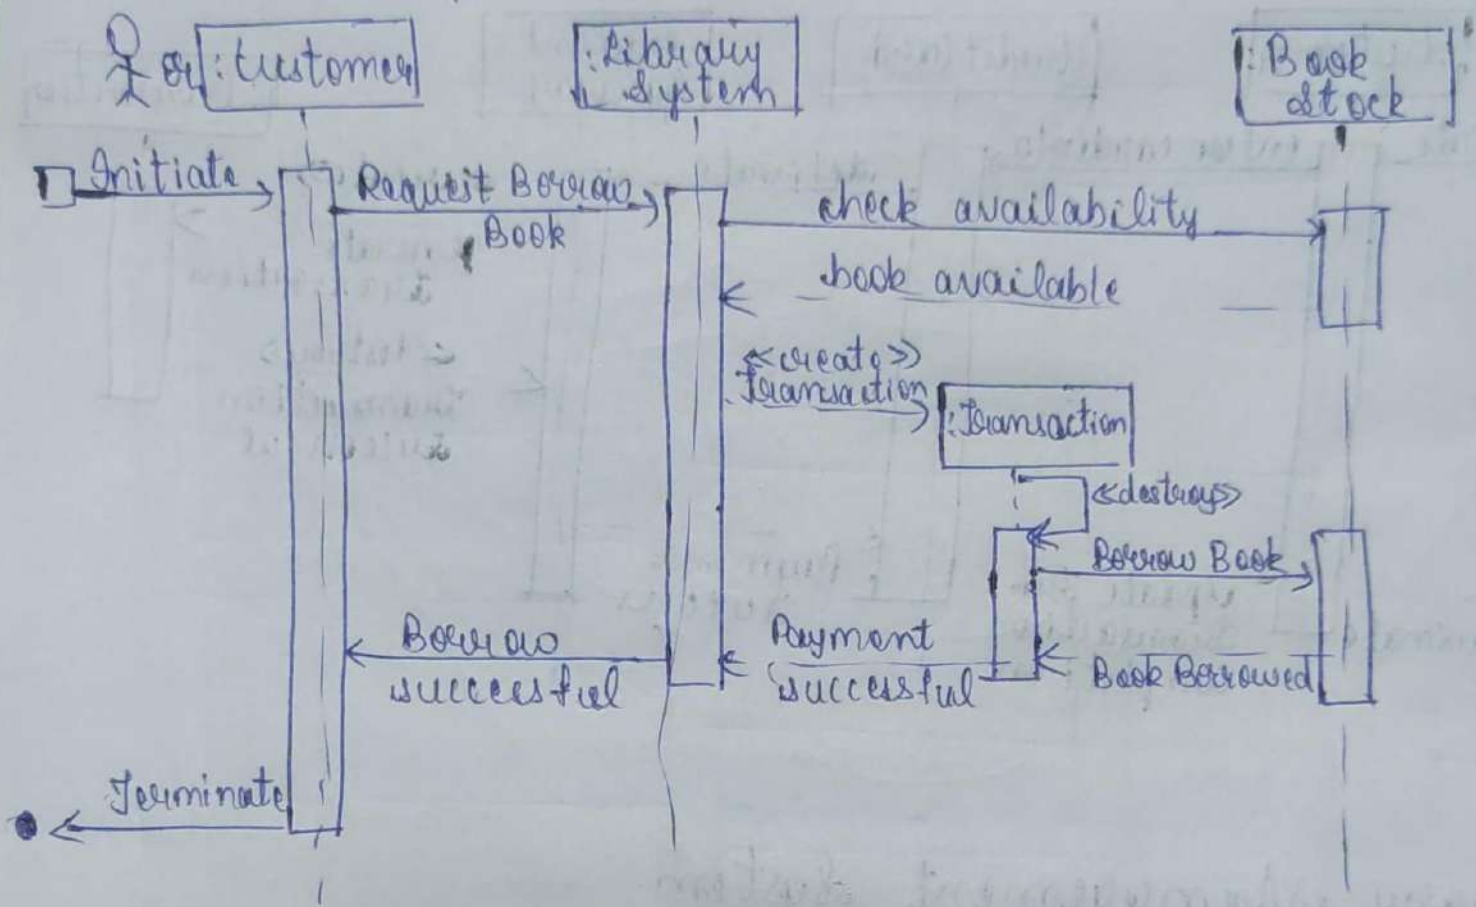 or :Customer
:Library
System
:Book
Stock
Initiate
Request Borrow
Book
check availability
book available
<<create>>
Transaction
:Transaction
<<destroy>>
Borrow Book
Borrow
successful
Payment
successful
Book Borrowed
Terminate